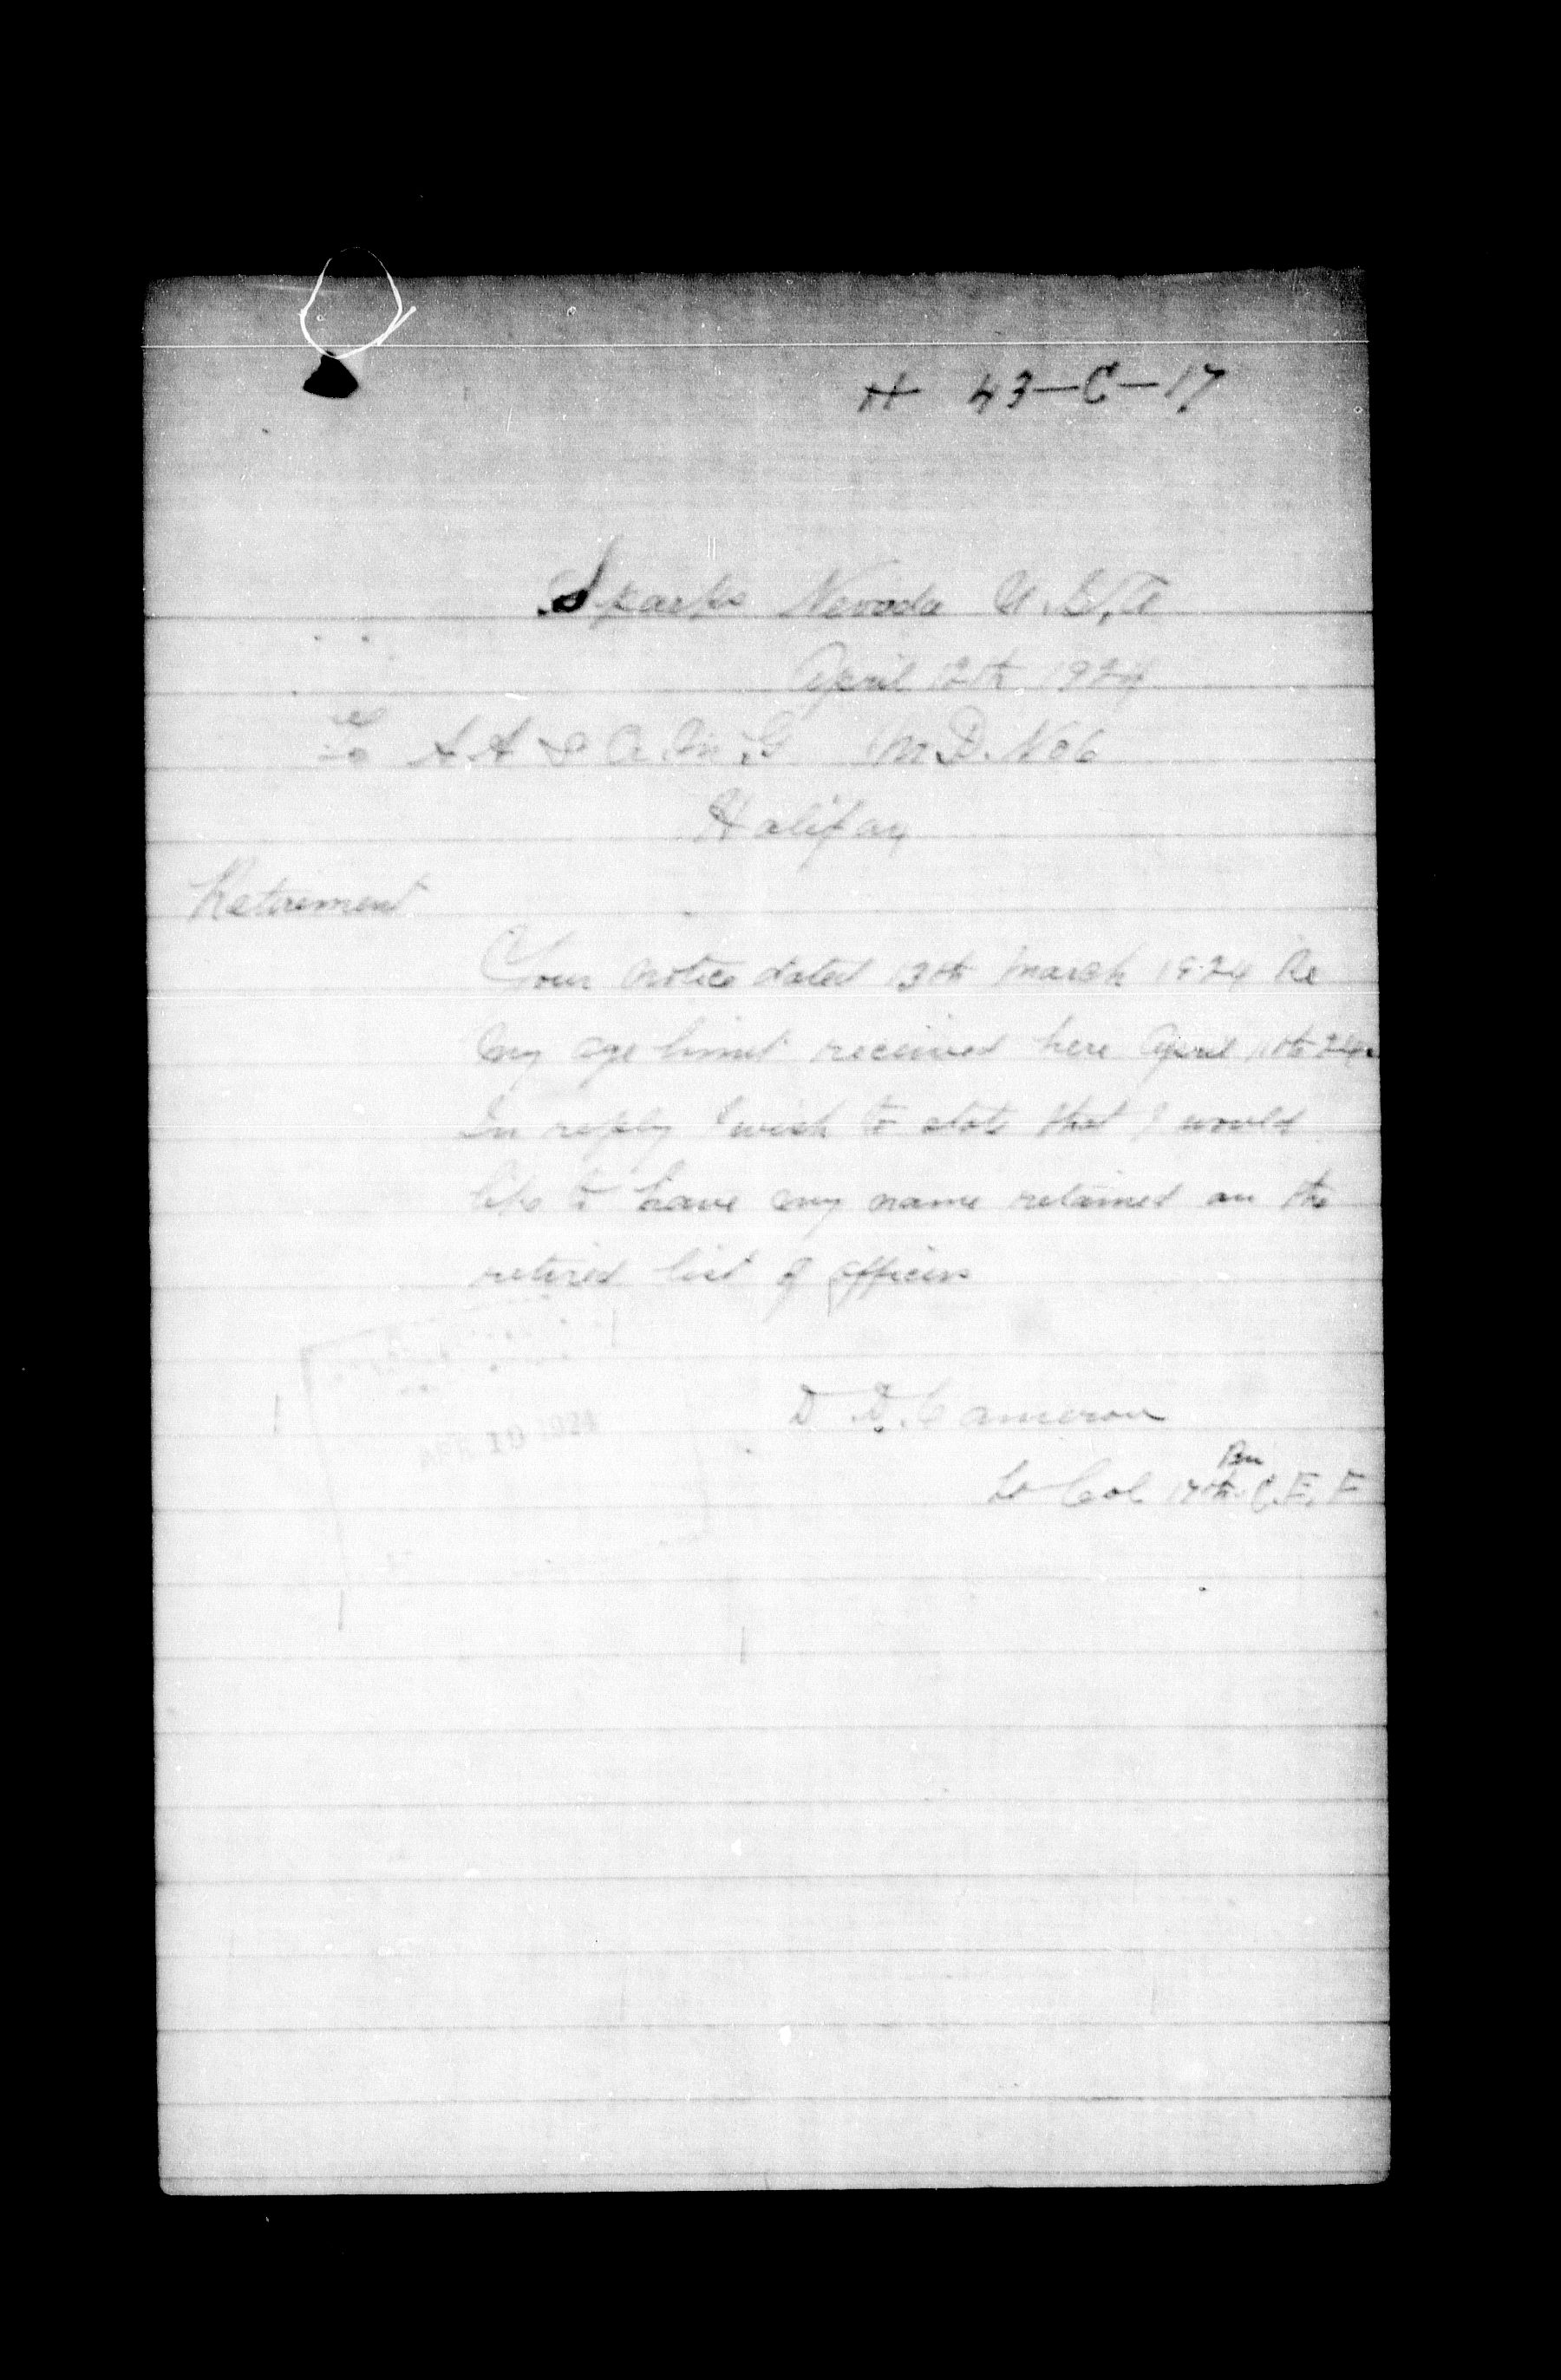 H 43-C-17
Sparks Nevada U.S.A
April 12th 1924
To A A & Q.M.G. M.D. No 6
Halifax
Retirement
Your notice dated 13th March 1924 Re
my age limit received here April 11th 24.
In reply I wish to state that I would
like to have my name retained on the
retired list of officers
D. D. Cameron
Lt Col 17th Bn C.E.F